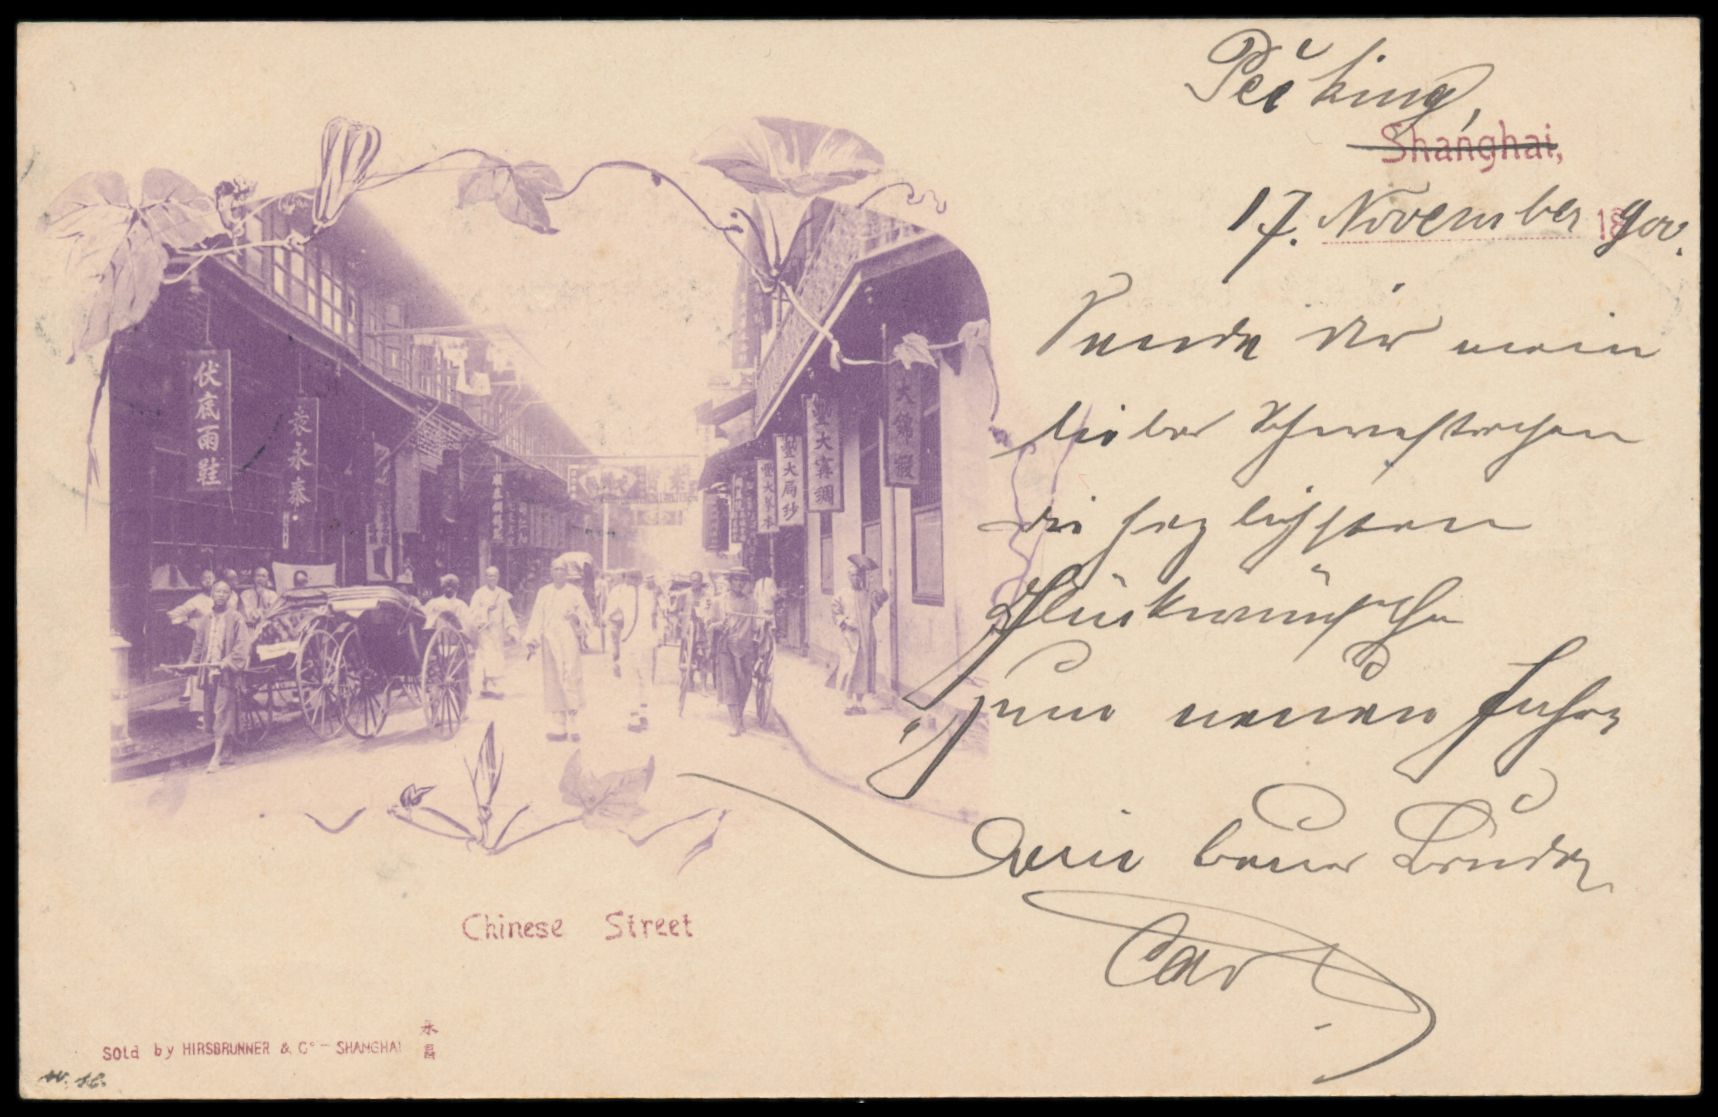 Peiking,
Shanghai,
17. November 1900.
Sende dir mein
lieber Schwesterchen
die herzlichsten
Glückwünsche
zum neuen Jahre
Dein treuer Bruder
Carl
伏底雨鞋
袁永泰
大綸緞
大綢
大局紗
Chinese Street
Sold by HIRSBRUNNER & Cº - SHANGHAI
永昌